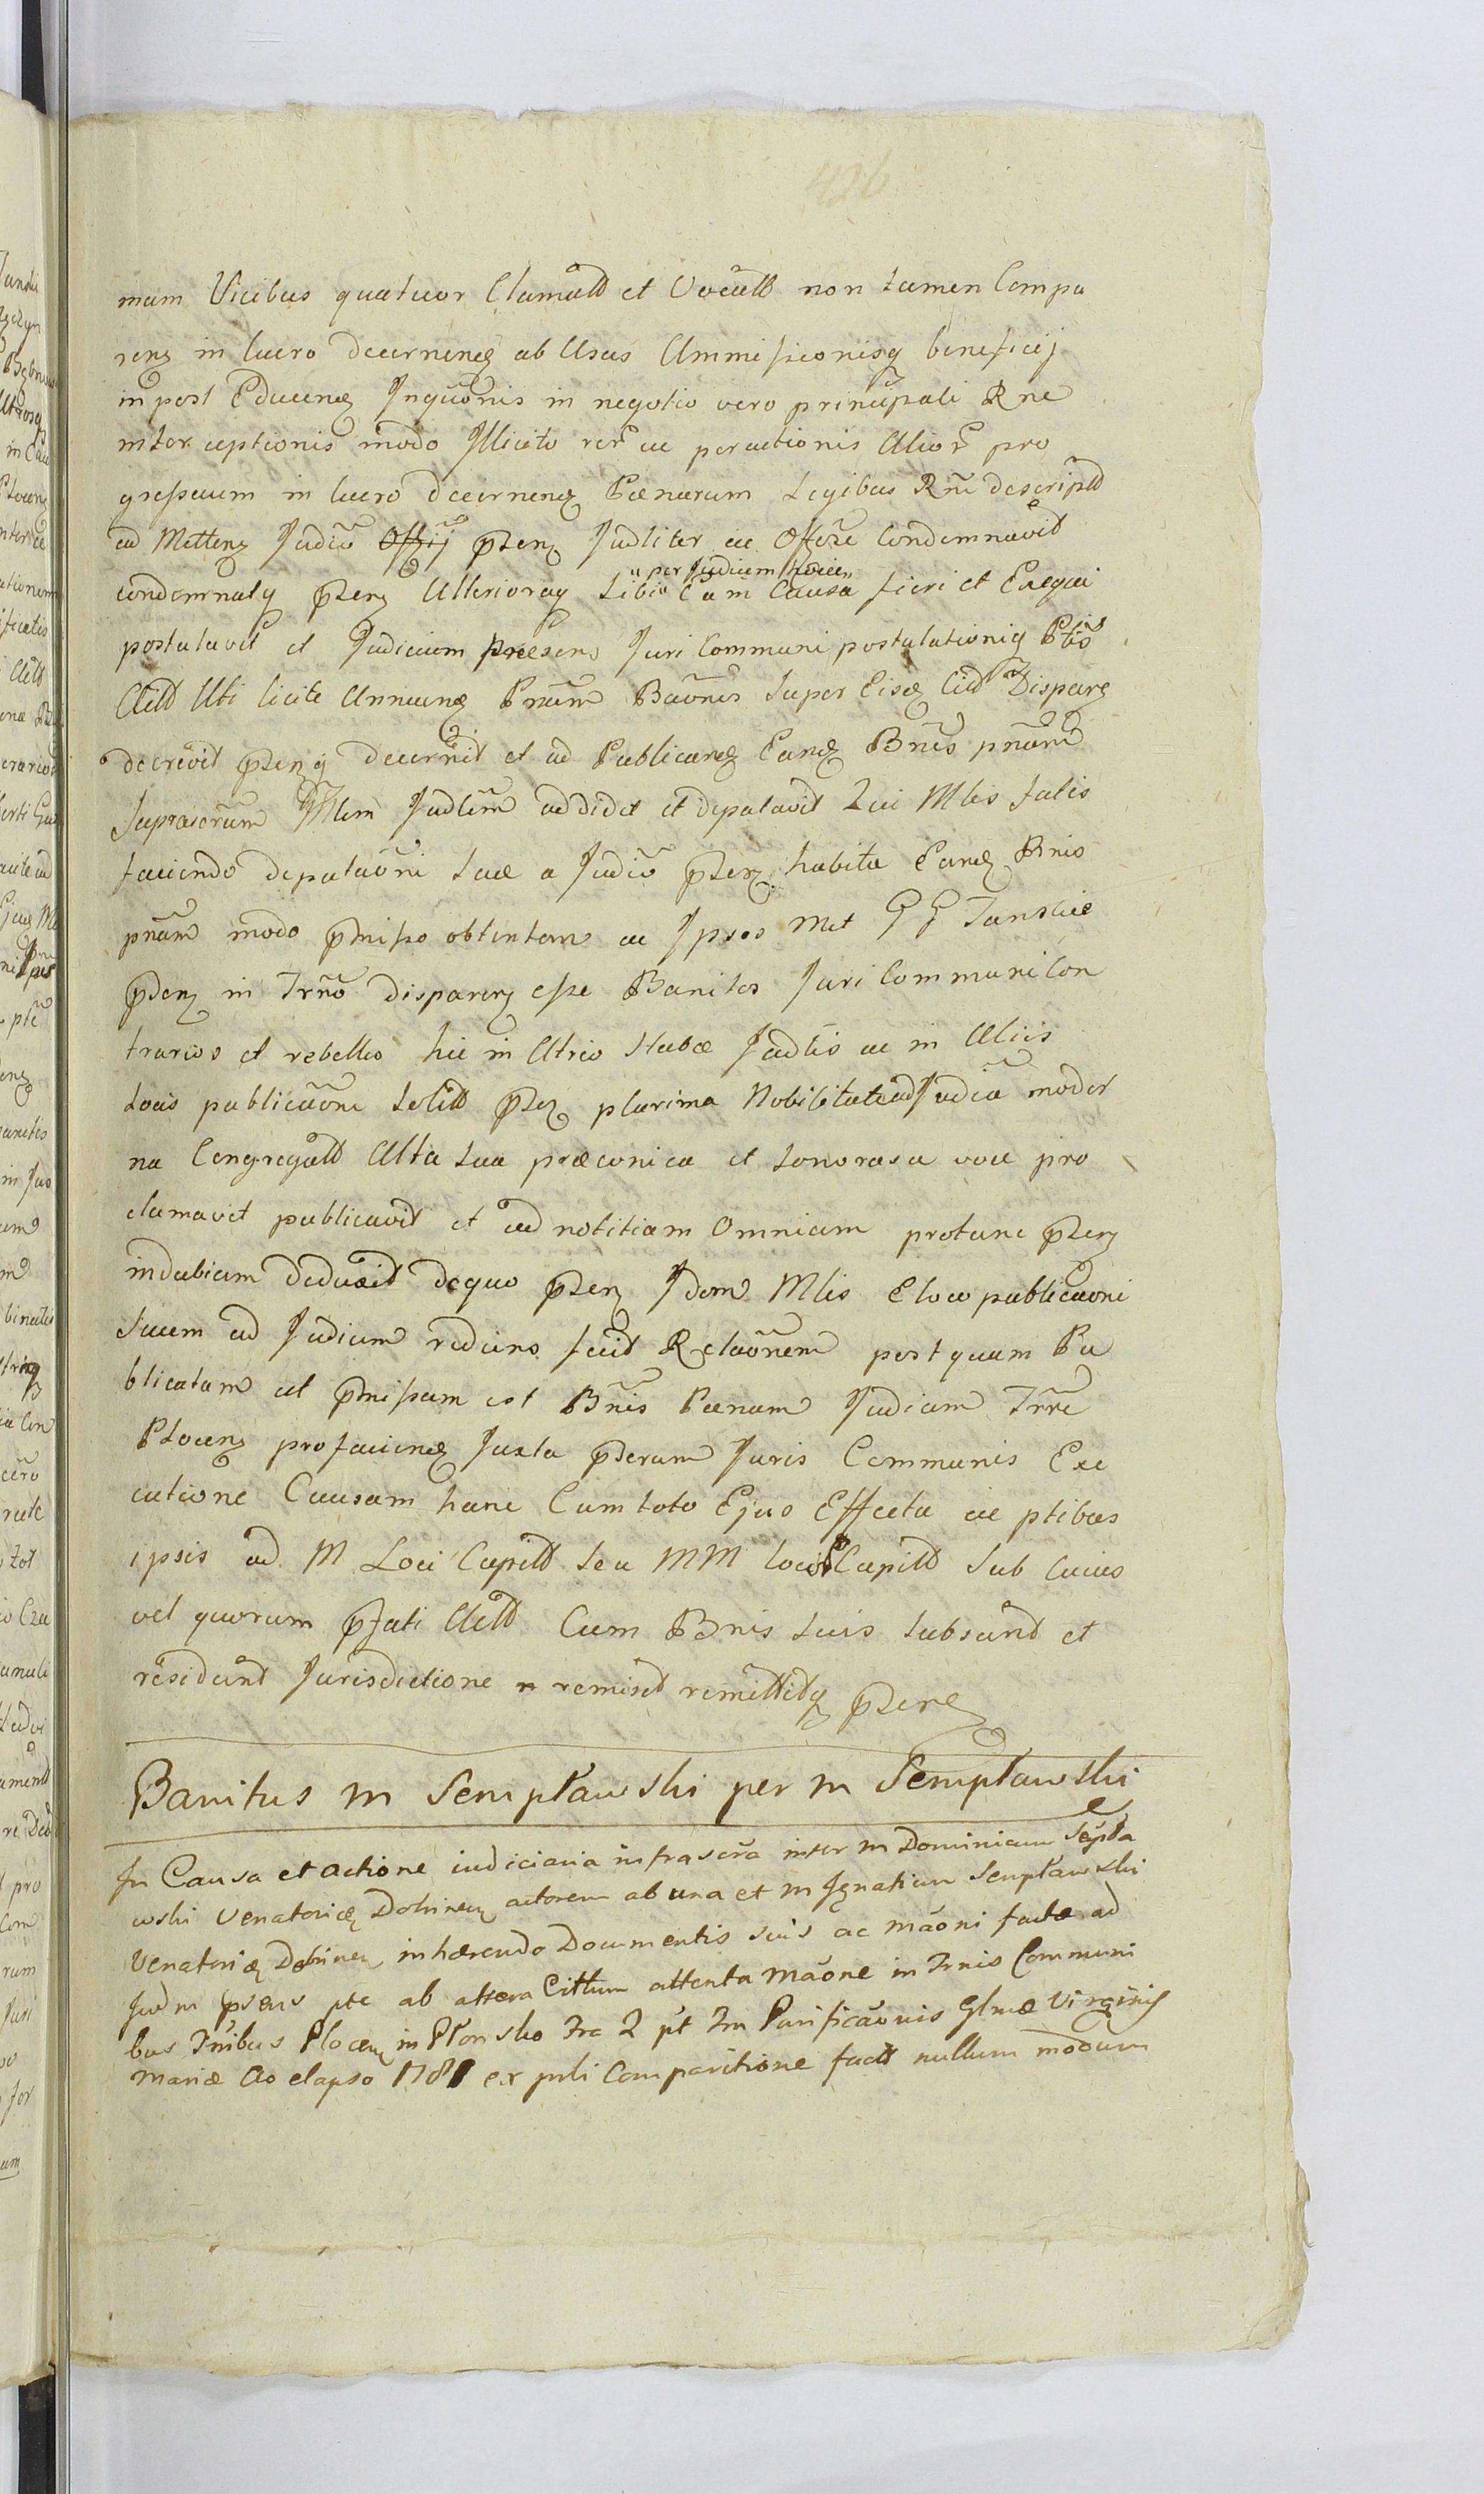 426
mum Vicibus quatuor Clamatt et Vocatt non tamen Compa
rens in lucro decernendae ab Usus Ammissionisq beneficij
in post Educend Inquõnis in negotio vero principali Rne
interceptionis modo Illicito rer ac peractionis Alior pro
gressuum in lucro decernend Pœnarum Legibus Rni descript
ad Mettenz Judiu Offij pten Judliter ac Offose Condemnavit
condemnatq pten Ulterioraq Sibi " per Judicium hocce " Cum Causa fieri et Exequi
postulavit et Judicium præsens Juri Communi postulationiq Ptis
Actt Uti licite Annuend Pnam Baõnis Super Eisd Citt Disparen
decrevit ptenq decernit et ad Publicand Eand Bnis pnam
Suprascrum Mlem Judlem addidit et deputavit Qui Mlis Satis
faciendo deputaõni suæ a Judiõ pten habita Eand Bnis
pnam modo pmisso obtentam ac Ipsos Met GG Janskie
pden in Trno disparen esse Banitos Juri Communi Con
trarios et rebelles hic in Atrio Stubæ Judlis ac in Aliis
Locis publicaõne solitt pten plurima Nobilitate ad Judicia moder
na Congregatt Alta sua præconica et sonorosa voce pro
clamavit publicavit et ad notitiam Omnium protunc pten
indubiam deduxit dequo pten Idem Mlis E loco publicaoni
Suum ad Judicium rediens fecit Relaõnem postquam Pu
blicatam ut pmissum est Bnis Pœnam Judicium Trre
Plocen pro faciend Juxta pderum Juris Communis Exe
cutione Causam hanc Cum toto Ejus Effectu ac ptibus
ipsis ad M Loci Capitt seu MM locor Capitt Sub cuius
vel quorum pfati Actt Cum Bnis suis subsunt et
resident Jurisdictione remisit remittitq ptene
Banitus M Sempławski per M Sempławski
In Causa et actione iudiciaria infrascra inter M Dominicum Sempła
wski Venatorid Dobrinen actorem ab una et M Ignatium Sempławski
Venatorid Dobrinen inhærendo Documentis suis ac mãoni factæ ad
Judm psens pte ab altera Cittum attenta mãone in Trnis Communi
bus Trribus Plocen in Płonsko Fra 2 pt Fm Purificaõnis Glmæ Virginis
Mariæ Ao elapso 1781 ex puli Comparitione fact nullum modum